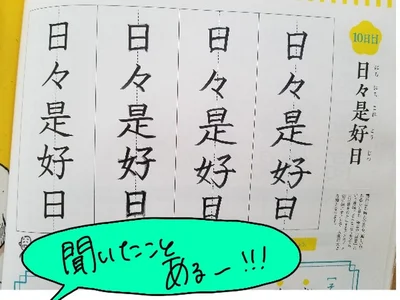 10日目
日々是好日
日々是好日
日々是好日
日々是好日
日々是好日
聞いたこと
あるー!!!